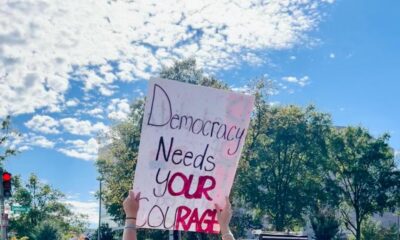 Democracy
Needs
YOUR
COURAGE